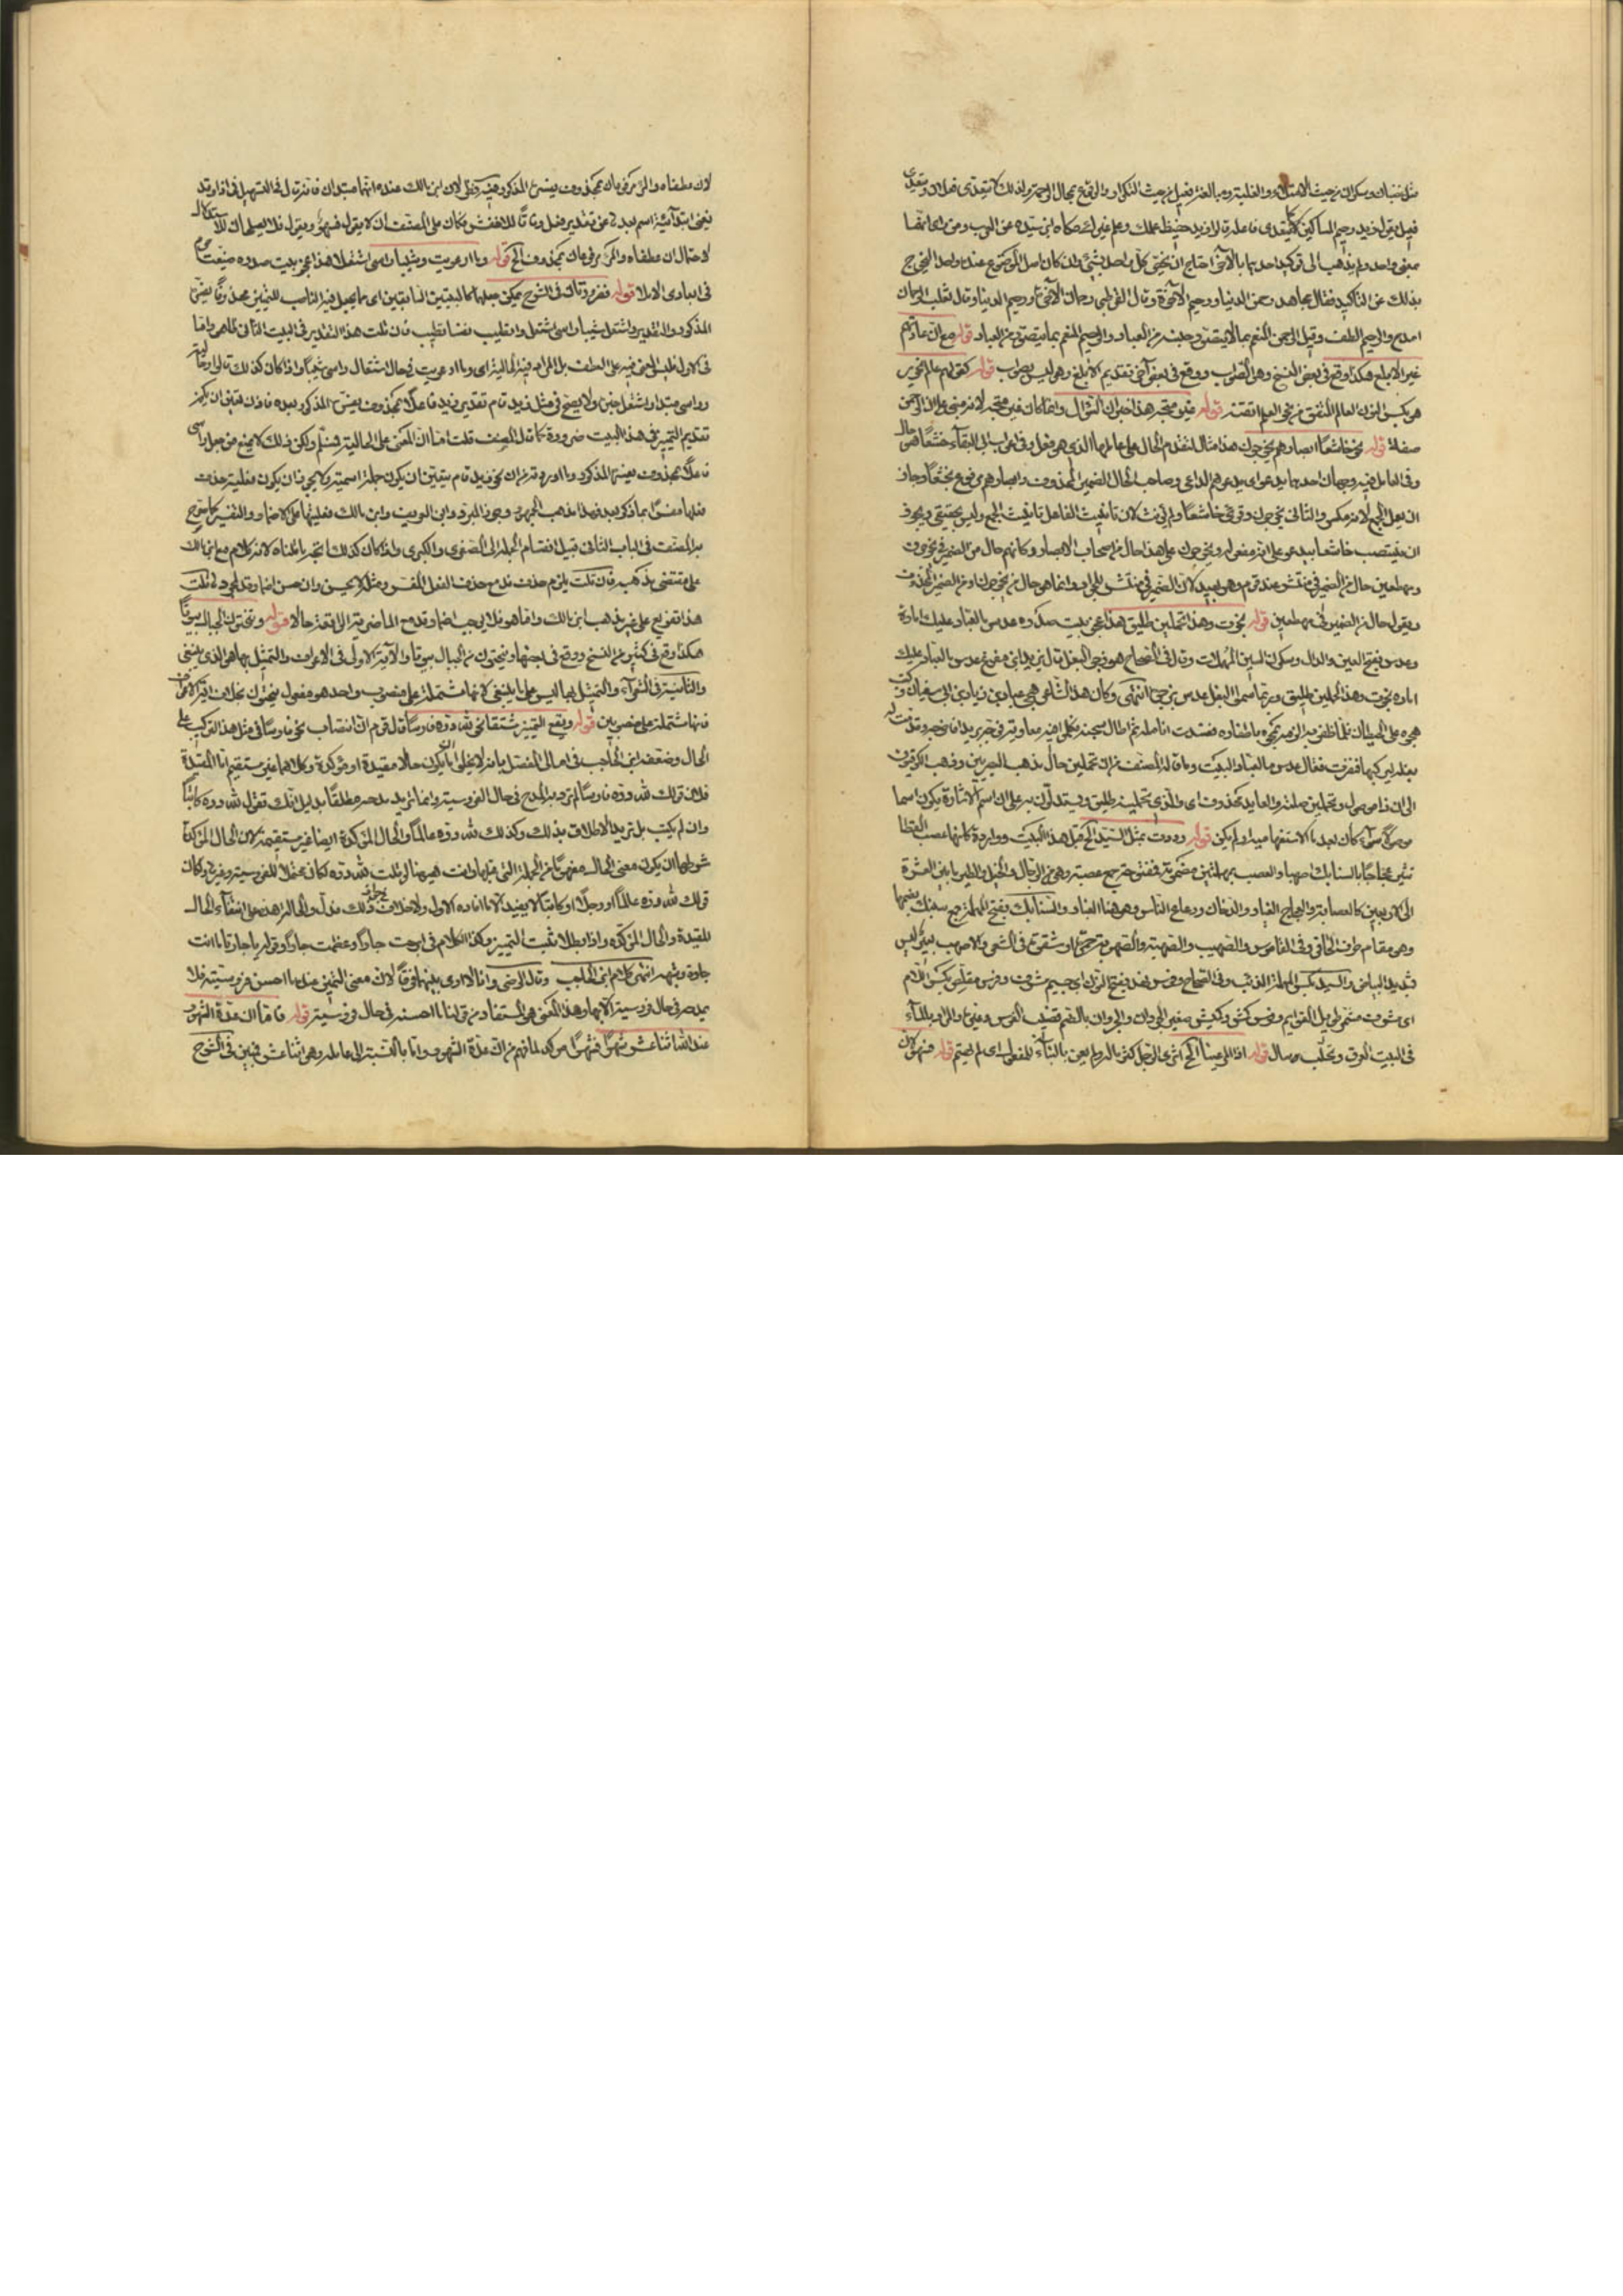 مثل غضبان وسكران من حيث الامتلاء والغلبة ومبالغة فعيل من حيث التكرار والوقوع بمحال الرحمة ولذلك لا يتعدى فعلان ويتعدى
فعيل يقول زيد رحيم المساكين كما يتعدى فاعلا قالوا زيد حفيظ علمك وعلم غيرك حكاه ابن سيده عن العرب ومن رأى انهما
بمعنى واحد ولم يذهب الى توكيد احدهما بالآخر احتاج ان يخص كل واحد بشئ وان كان اصل الموضوع عنده واحدا ليخرج
بذلك عن التاكيد فقال مجاهد رحمن الدنيا ورحيم الآخرة وقال القرطبي رحمان الآخرة ورحيم الدنيا وقال ثعلب الرحمان
امدح والرحيم الطف وقيل الرحمن المنعم بما لا يتصور جنسه من العباد والرحيم المنعم بما يتصور من العباد قوله مع ان عادتهم
غير الابلغ هكذا وقع في بعض النسخ وهو الصواب ووقع في بعض آخر تقديم الابلغ وهو ليس بصواب قوله كقولهم عالم نحرير
هو بكسر النون العالم المتقن من نحر العلم اتقنه قوله غير متجه هذا خبر ان السؤال وانما كان غير متجه لانه مبني على ان الرحمن
صفة قوله نحو خاشعا ابصارهم يخرجون هذا مثال لتقدم الحال على عاملها الذي هو فعل وفي اعراب ابي البقاء خشعا هو حال
وفي العامل فيه وجهان احدهما يدعو اي يدعوهم الداعي وصاحب الحال الضمير المحذوف وابصارهم مرفوع بخشعا وجاز
ان يعمل الجمع لانه مكسر والثاني يخرجون وقرئ خاشعا ولم يؤنث لان تانيث الفاعل تانيث الجمع وليس بحقيقي ويجوز
ان ينتصب خاشعا بيدعو على انه مفعوله ويخرجون على هذا حال من اصحاب الابصار وكانهم حال من الضمير في يخرجون
ومهطعين حال من الضمير في منتشر عند قوم وهو بعيد لان الضمير في منتشر للجراد وانما هو حال من يخرجون او من الضمير المحذوف
ويقول حال من الضمير في مهطعين قوله نجوت وهذا تحملين طليق هذا عجز بيت صدره عدس ما لعباد عليك امارة
وعدس بفتح العين والدال وسكون السين المهملات وقال في الصحاح هو زجر البغل قال يزيد ابن مفرغ عدس ما لعباد عليك
امارة نجوت وهذا تحملين طليق وربما سموا البغل عدس بزجرها انتهى وكان هذا الشاعر هجى عباد بن زياد بن ابي سفيان وكتب
هجوه على الحيطان فلما ظفر به الزمه بمحوه باظفاره ففسدت انامله ثم اطال سجنه فكلموا فيه معاوية فوجه بريدا فاخرجه وقدمت له
بغلة ليركبها فنفرت فقال عدس ما لعباد البيت وما قاله المصنف من ان تحملين حال مذهب البصريين وذهب الكوفيون
الى ان ذا موصول وتحملين صلته والعايد محذوف اي والذي تحملينه طليق ويستدلون به على ان اسم الاشارة يكون اسما
موصولا سواء كان بعد ما الاستفهامية او لم يكن قوله رددت بمثل السيد الخ قبل هذا البيت وواردة كانها عصب القطا
تثير عجاجا بالسنابك اصهبا والعصب بمهملتين مضمومة ففتوحة جمع عصبة وهي من الرجال والخيل والطير ما بين العشرة
الى الاربعين كالعصابة والعجاج الغبار والدخان ورعاع الناس وهو هنا الغبار والسنابك بفتح المهملة جمع سنبك بضمها
وهو مقدم طرف الحافر وفي القاموس والصهب والصهبة والصهوبة حمرة او شقرة في الشعر والاصهب بعير ليس
شديد البياض والسيد بكسر المهملة الذئب وفي الصحاح وفرس نهد بفتح النون اي جسيم مشرف وفرس مقلص بكسر اللام
اي مشرف مشمر طويل القوائم وفرس كمش وكميش صغير الجردان والجردان بالضم قضيب الفرس وغيره والمراد بالماء
في البيت العرق وتحلب سال قوله اذا المرء عينا الخ اثرى الرجل كثر ماله ولم يعن بالبناء للمفعول اي لم يهتم قوله فسهو لان
لان عطفاه والمرء مرفوعان بمحذوف يفسره المذكور فيه نظر لان ابن مالك عنده انهما مبتدان فانه قال في التسهيل في اذا وقد
تغني ابتدائية اسم بعدها عن تقدير فعل وفاقا للاخفش فكان على المصنف ان لا يقول فسهو ويقول فلا دليل هناك للاستدلال
لاحتمال ان عطفاه والمرء مرفوعان بمحذوف الخ قوله وما ارعويت وشيبا راسي اشتعلا هذا عجز بيت صدره ضيعت حزمي
في ابعادي الاملا قوله فضرورتان في الشرح يمكن جعلهما كالبيتين السابقين اي ما يجعل فيه الناصب للتمييز محذوفا يفسره
المذكور والتقدير واشتعل شيبا راسي اشتعل وا تطيب نفسا تطيب فان قلت هذا التقدير في البيت الثاني ظاهر واما
في الاول فليس المعنى فيه على العطف بل الواو فيه للحالية اي وما ارعويت في حال اشتعال راسي شيبا واذا كان كذلك قالوا وحالية
وراسي مبتدا واشتعل خبره ولا يصح في مثل زيد قام تقدير زيد فاعلا بمحذوف يفسره المذكور بعده فاذن فتعين ان يكون
تقديم التمييز في هذا البيت ضرورة كما قال المصنف قلت اما ان المعنى على الحالية فمسلم ولكن ذلك لا يمنع من جعل راسي
فاعلا بمحذوف يفسره المذكور وما اورده من ان نحو زيد قام يتعين ان يكون جملة اسمية ولا يجوز ان يكون فعلية حذف
فعلها مفسرا بما ذكر بعد فهذا مذهب الجمهور وجوز المبرد وابن العريف وابن مالك فعليتها على الاضمار والتفسير كما صرح
به المصنف في الباب الثاني قبيل انقسام الجملة الى الصغرى والكبرى واذا كان كذلك اتجه ما قلناه لانه كلام مع ابن مالك
على مقتضى مذهبه فان قلت يلزم حذف قد مع حذف الفعل المفسر ومثله لا يحسن وان حسن اضمار قد لمجرده قلت
هذا تفريع على غير مذهب ابن مالك واما هو فلا يوجب اضمار قد مع الماضي مثبتا الواقع حالا قوله وتنحتون الجبال بيوتا
هكذا وقع في كثير من النسخ ووقع في بعضها وتنحتون من الجبال بيوتا والآية الاولى في الاعراف والتمثيل بها هو الذي ينبغي
والثانية في الشعراء والتمثيل بها ليس على ما ينبغي لانها مشتملة على منصوب واحد هو مفعول تنحتون بخلاف آية الاعراف
فانها مشتملة على منصوبين قوله ويقع التمييز مشتقا نحو لله دره فارسا قال قوم ان انتصاب نحو فارسا في مثل هذا التركيب على
الحال وضعفه ابن الحاجب في امالي المفصل بانه لا يخلو اما ان يكون حالا مقيدة او مؤكدة وكلاهما غير مستقيم اما المقيدة
فلان قولك لله دره فارسا لم ترد به المدح في حال الفروسية وانما تريد مدحه مطلقا بدليل انك تقول لله دره كاتبا
وان لم يكتب بل تريد الاطلاق بذلك وكذلك لله دره عالما والحال المؤكدة ايضا غير مستقيمة لان الحال المؤكدة
شرطها ان يكون معنى الحال مفهوما من الجملة التي قبلها وانت هيهنا لو قلت لله دره لكان محتملا للفروسية وغيرها وكان
قولك لله دره عالما او رجلا او كاتبا لا يفيد الا ما افاده الاول ولا خلاف في جواز ذلك فدل والحالة هذه على انتفاء الحال
المقيدة والحال المؤكدة واذا بطلا ثبت التمييز وهكذا الكلام في ابرحت جارا وعظمت جارا وقوله يا جارتا ما انت
جارة وشبهه انتهى كلام ابن الحاجب وقال الرضي وانا لا ارى بينهما فرقا لان معنى التمييز عنده ما احسن فروسيته فلا
يمدحه في حال فروسيته الا بها وهذا المعنى هو المستفاد من قولنا ما احسنه في حال فروسيته قوله فاما ان عدة الشهور
عند الله اثنا عشر شهرا فشهرا موكد لما فهم من ان عدة الشهور واما بالنسبة الى عامله وهو اثنا عشر فمبين في الشرح